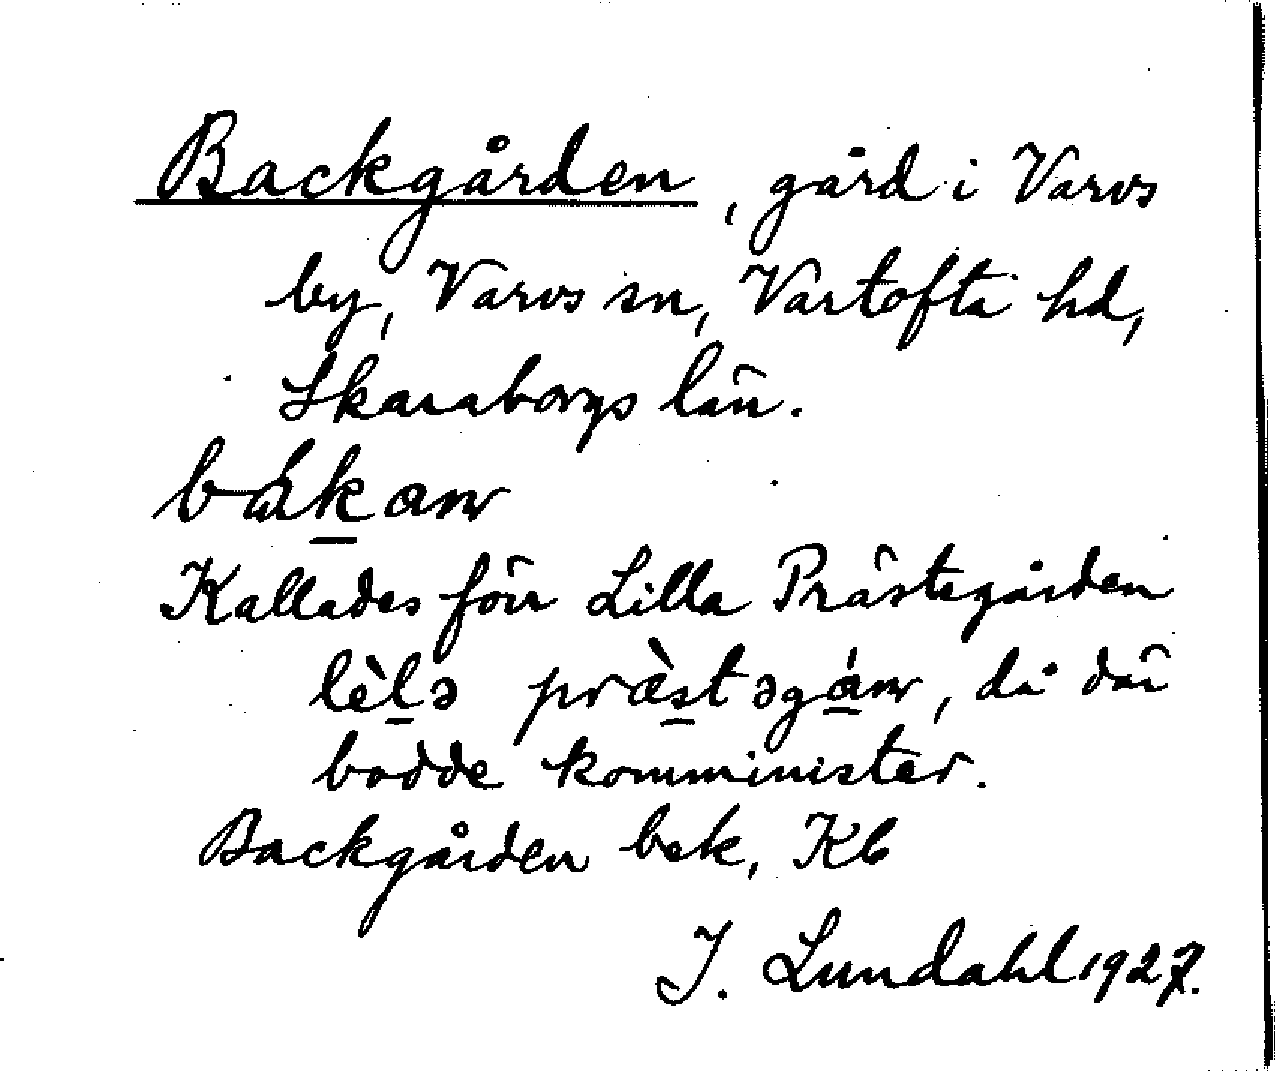 Backgården, gård i Varvs
by, Varvs sn, Vartofta hd,
Skaraborgs län.
bák̲anr
Kallades förr Lilla Prästegården
lèl̲ə præ̀s̲təgá̲nr, då där
bodde komminister.
Backgården bek, Kb
J. Lundahl 1927.